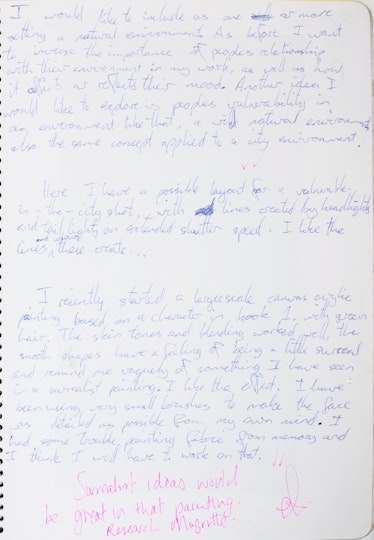 I would like to include as one or more
setting a natural environment. As before I want
to increase the importance of peoples relationship
with their environment in my work, as well as how
it effects or reflects their mood. Another idea I
would like to explore is peoples vulnerability in
an environment like that, a wild natural environment,
also the same concept applied to a city environment.
Here I have a possible layout for a vulnerable-
in-the-city shot, with lines created by headlights
and tail lights on extended shutter speed. I like the
lines these create...
I recently started a large scale canvas acrylic
painting based on a character in book 1, with green
hair. The skin tones and blending worked well, the
smooth shapes have a feeling of being a little surreal
and remind me vaguely of something I have seen
in a surrealist painting. I like the effect. I have
been using very small brushes to make the face
as detailed as possible from my own mind. I
had some trouble painting fabric from memory and
I think I will have to work on that.
Surrealist ideas would
be great in that painting.
Research Magritte.